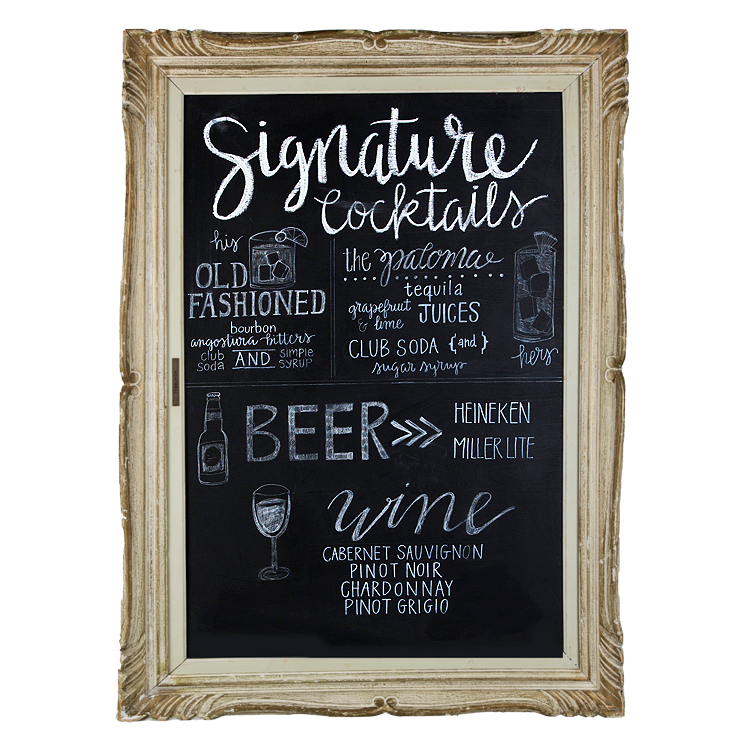 Signature
Cocktails
his
OLD
FASHIONED
bourbon
angostura bitters
club soda AND simple syrup
the paloma
tequila
grapefruit & lime JUICES
CLUB SODA {and}
sugar syrup
hers
BEER >>>
HEINEKEN
MILLER LITE
wine
CABERNET SAUVIGNON
PINOT NOIR
CHARDONNAY
PINOT GRIGIO